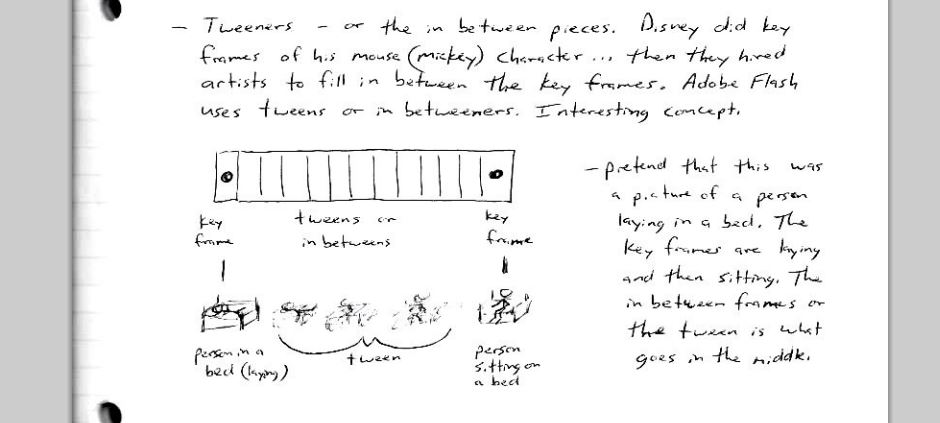 - Tweeners - or the in between pieces. Disney did key
frames of his mouse (mickey) character ... then they hired
artists to fill in between the key frames. Adobe Flash
uses tweens or in betweeners. Interesting concept.
key
frame
tweens or
in betweens
key
frame
person in a
bed (laying)
tween
person
sitting on
a bed
- pretend that this was
a picture of a person
laying in a bed. The
key frames are laying
and then sitting. The
in between frames or
the tween is what
goes in the middle.